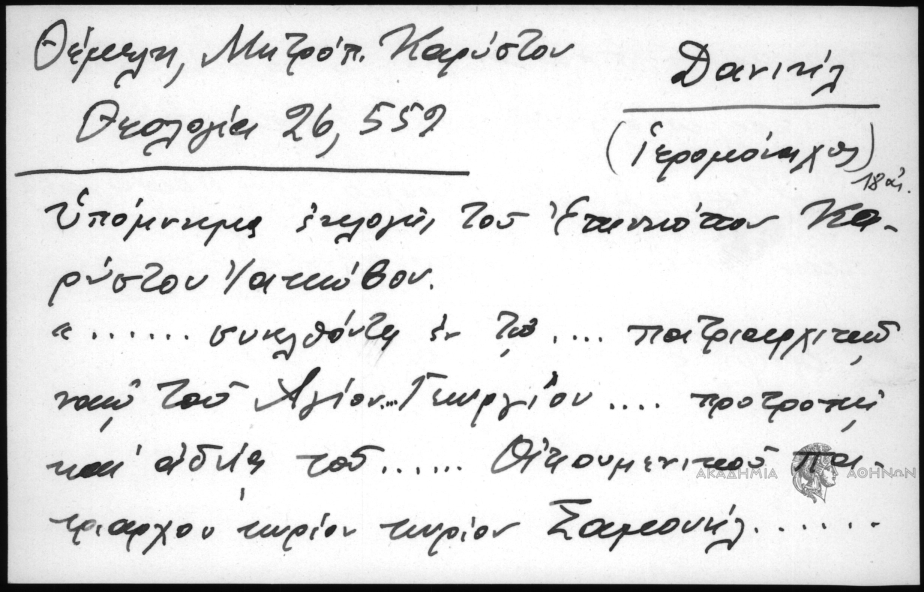 Θέμελη, Μητρόπ. Καρύστου
Θεολογία 26, 552
Δανιήλ
(ἱερομόναχος)
18 αἰ.
Ὑπόμνημα ἐκλογῆς τοῦ Ἐπισκόπου Κα-
ρύστου Ἰακώβου.
"...... συνελθόντες ἐν τῷ .... πατριαρχικῷ
ναῷ τοῦ Ἁγίου... Γεωργίου .... προτροπῇ
καὶ ἀδείᾳ τοῦ...... Οἰκουμενικοῦ Πα-
τριάρχου κυρίου κυρίου Σαμουήλ.......
ΑΚΑΔΗΜΙΑ ΑΘΗΝΩΝ